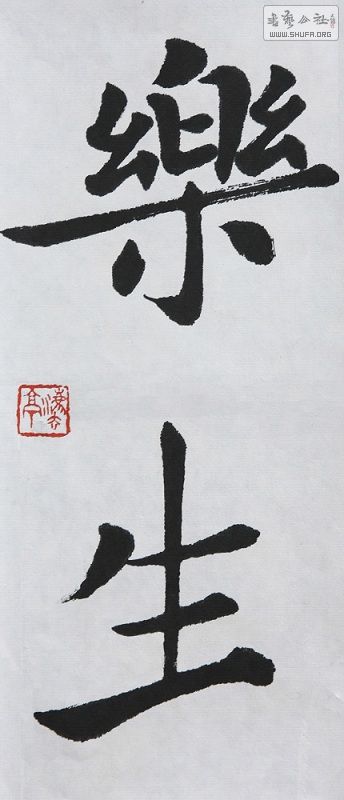 书艺公社
WWW.SHUFA.ORG
樂
生